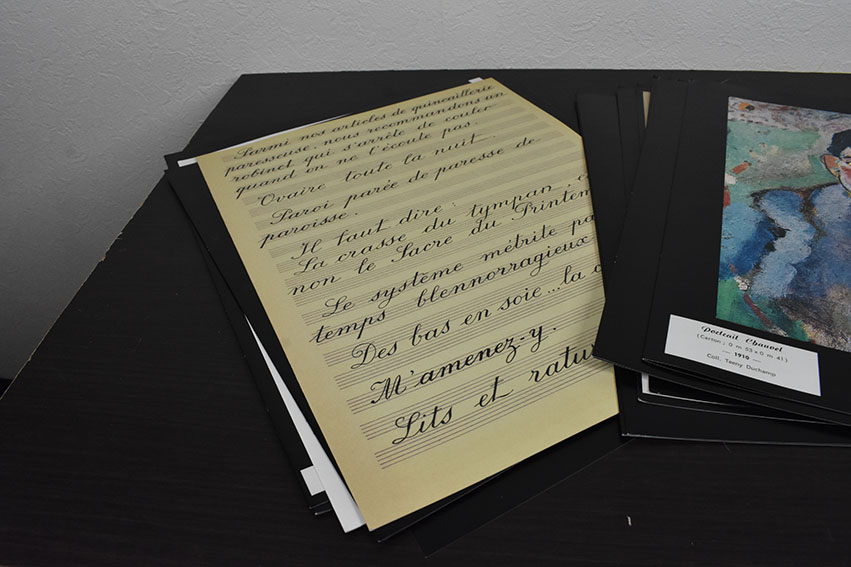 Parmi nos articles de quincaillerie
paresseuse, nous recommandons un
robinet qui s'arrête de couler
quand on ne l'écoute pas.
Ovaire toute la nuit.
Paroi parée de paresse de
paroisse.
Il faut dire:
La crasse du tympan,
non le Sacre du Printem
Le système métrite pa
temps blennorragieux
Des bas en soie...la c
M'amenez-y.
Lits et ratur
Portrait Chauvel
(Carton; 0 m 55 x 0 m 41)
— 1910 —
Coll. Teeny Duchamp